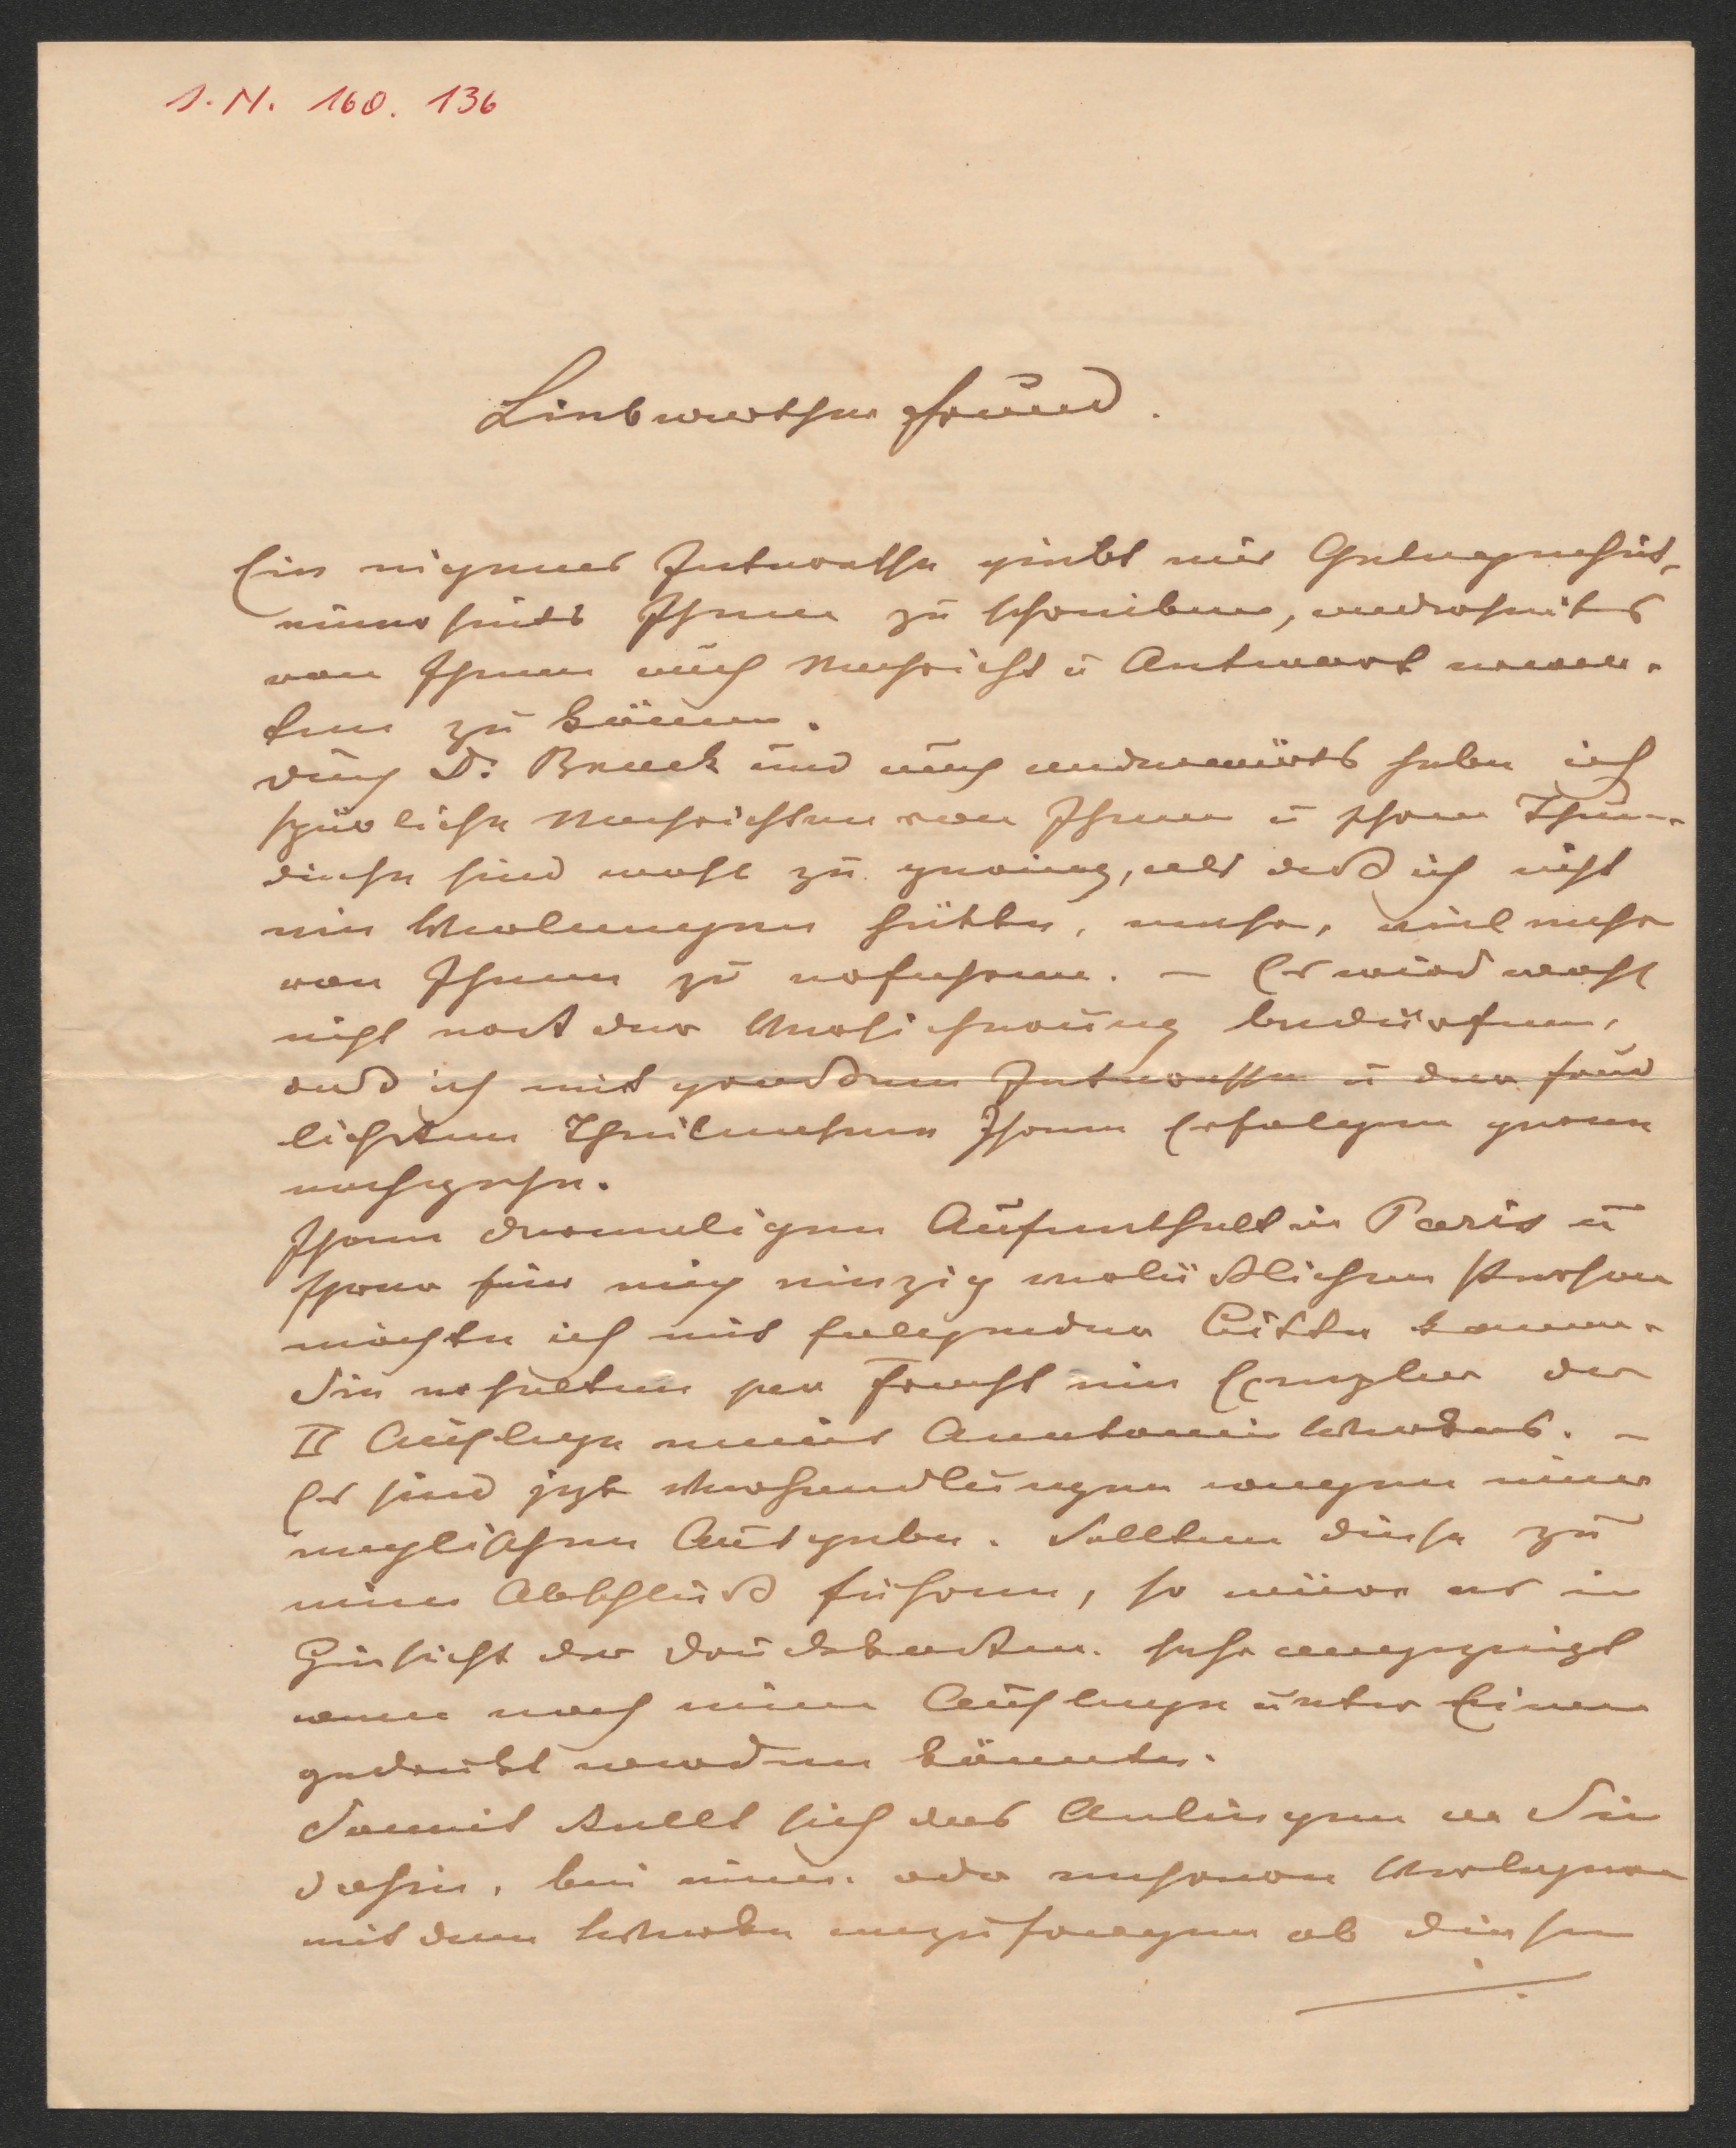 I. N. 160. 136
Liebwerther Freund.
Ein eigenes Interesse giebt mir Gelegenheit,
einerseits Ihnen zu schreiben, anderseits
von Ihnen auch Nachricht u Antwort erwar-
ten zu können.
Durch Dr. Brack und auch anderwärts habe ich
spärliche Nachrichten von Ihnen u Ihrem Thun.
diese sind wohl zu gering, als daß ich nicht
ein Verlangen hätte, mehr, viel mehr
von Ihnen zu erfahren. – Es wird wohl
nicht erst der Versicherung bedürfen,
daß ich mit großem Interesse u der freud
lichsten Theilnahme Ihren Erfolgen gerne
nachgehe.
Ihren dermaligen Aufenthalt in Paris u
Ihrer für mich einzig verläßlichen Person
möchte ich mit folgender Bitte kommen.
Sie erhalten per Fracht ein Exemplar der
II Auflage meines Anatomie Werkes. –
Es sind jetzt Verhandlungen wegen einer
englischen Ausgabe. Sollten diese zu
einem Abschluß führen, so wäre es in
Hinsicht der Druckkosten sehr angezeigt
wenn noch eine Auflage unter Einem
gedruckt werden könnte.
Somit stellt sich das Anliegen an Sie
dahin, bei einem oder mehreren Verlegern
mit dem Werke anzufragen ob diesen